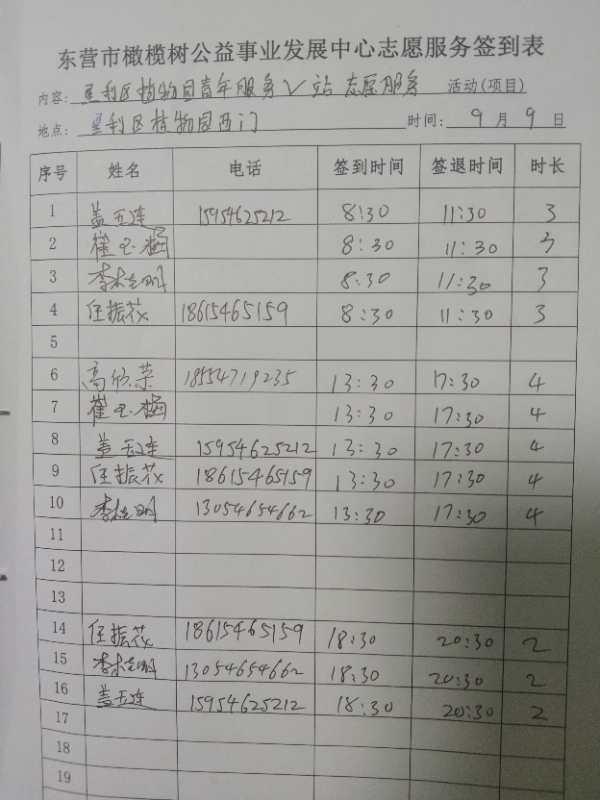 东营市橄榄树公益事业发展中心志愿服务签到表
内容：垦利区植物园青年服务V站志愿服务 活动(项目)
地点：垦利区植物园西门 时间：9月9日
序号 姓名 电话 签到时间 签退时间 时长
1 盖玉连 15954625212 8:30 11:30 3
2 崔玉梅 8:30 11:30 3
3 李 明 8:30 11:30 3
4 任振花 18615465159 8:30 11:30 3
5
6 高欣荣 18554719235 13:30 17:30 4
7 崔玉梅 13:30 17:30 4
8 盖玉连 15954625212 13:30 17:30 4
9 任振花 18615465159 13:30 17:30 4
10 李 明 13054654662 13:30 17:30 4
11
12
13
14 任振花 18615465159 18:30 20:30 2
15 李 明 13054654662 18:30 20:30 2
16 盖玉连 15954625212 18:30 20:30 2
17
18
19